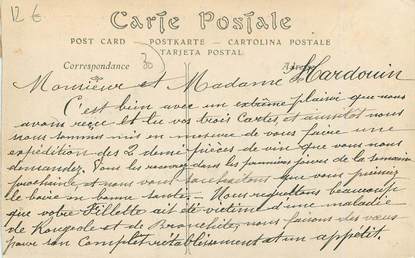 12 €
Carte Postale
POST CARD - POSTKARTE - CARTOLINA POSTALE
TARJETA POSTAL
Correspondance
Adresse
Monsieur et Madame Hardouin
C'est bien avec un extrême plaisir que nous
avons reçu et lu vos trois Cartes, et aussitôt nous
nous sommes mis en mesure de vous faire une
expédition des 2 demi-pièces de vin que vous nous
demandez. Vous les recevrez dans les premiers jours de la semaine
prochaine, et nous vous souhaitons que vous puissiez
le boire en bonne santé. - Nous regrettons beaucoup
que votre Fillette ait été victime d'une maladie
de Rougeole et de Bronchite, nous faisons des vœux
pour son Complet rétablissement et un appétit.